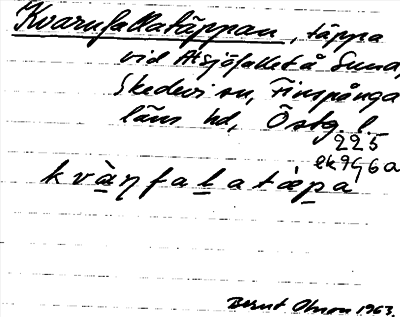 Kvarnfallatäppan, täppa
vid Alsjöfallet å Suna,
Skedevi sn, Finspånga
läns hd, Östg. l.
225
ek 9G6a
kvàꞃfalatäpa
Bernt Olsson 1963.